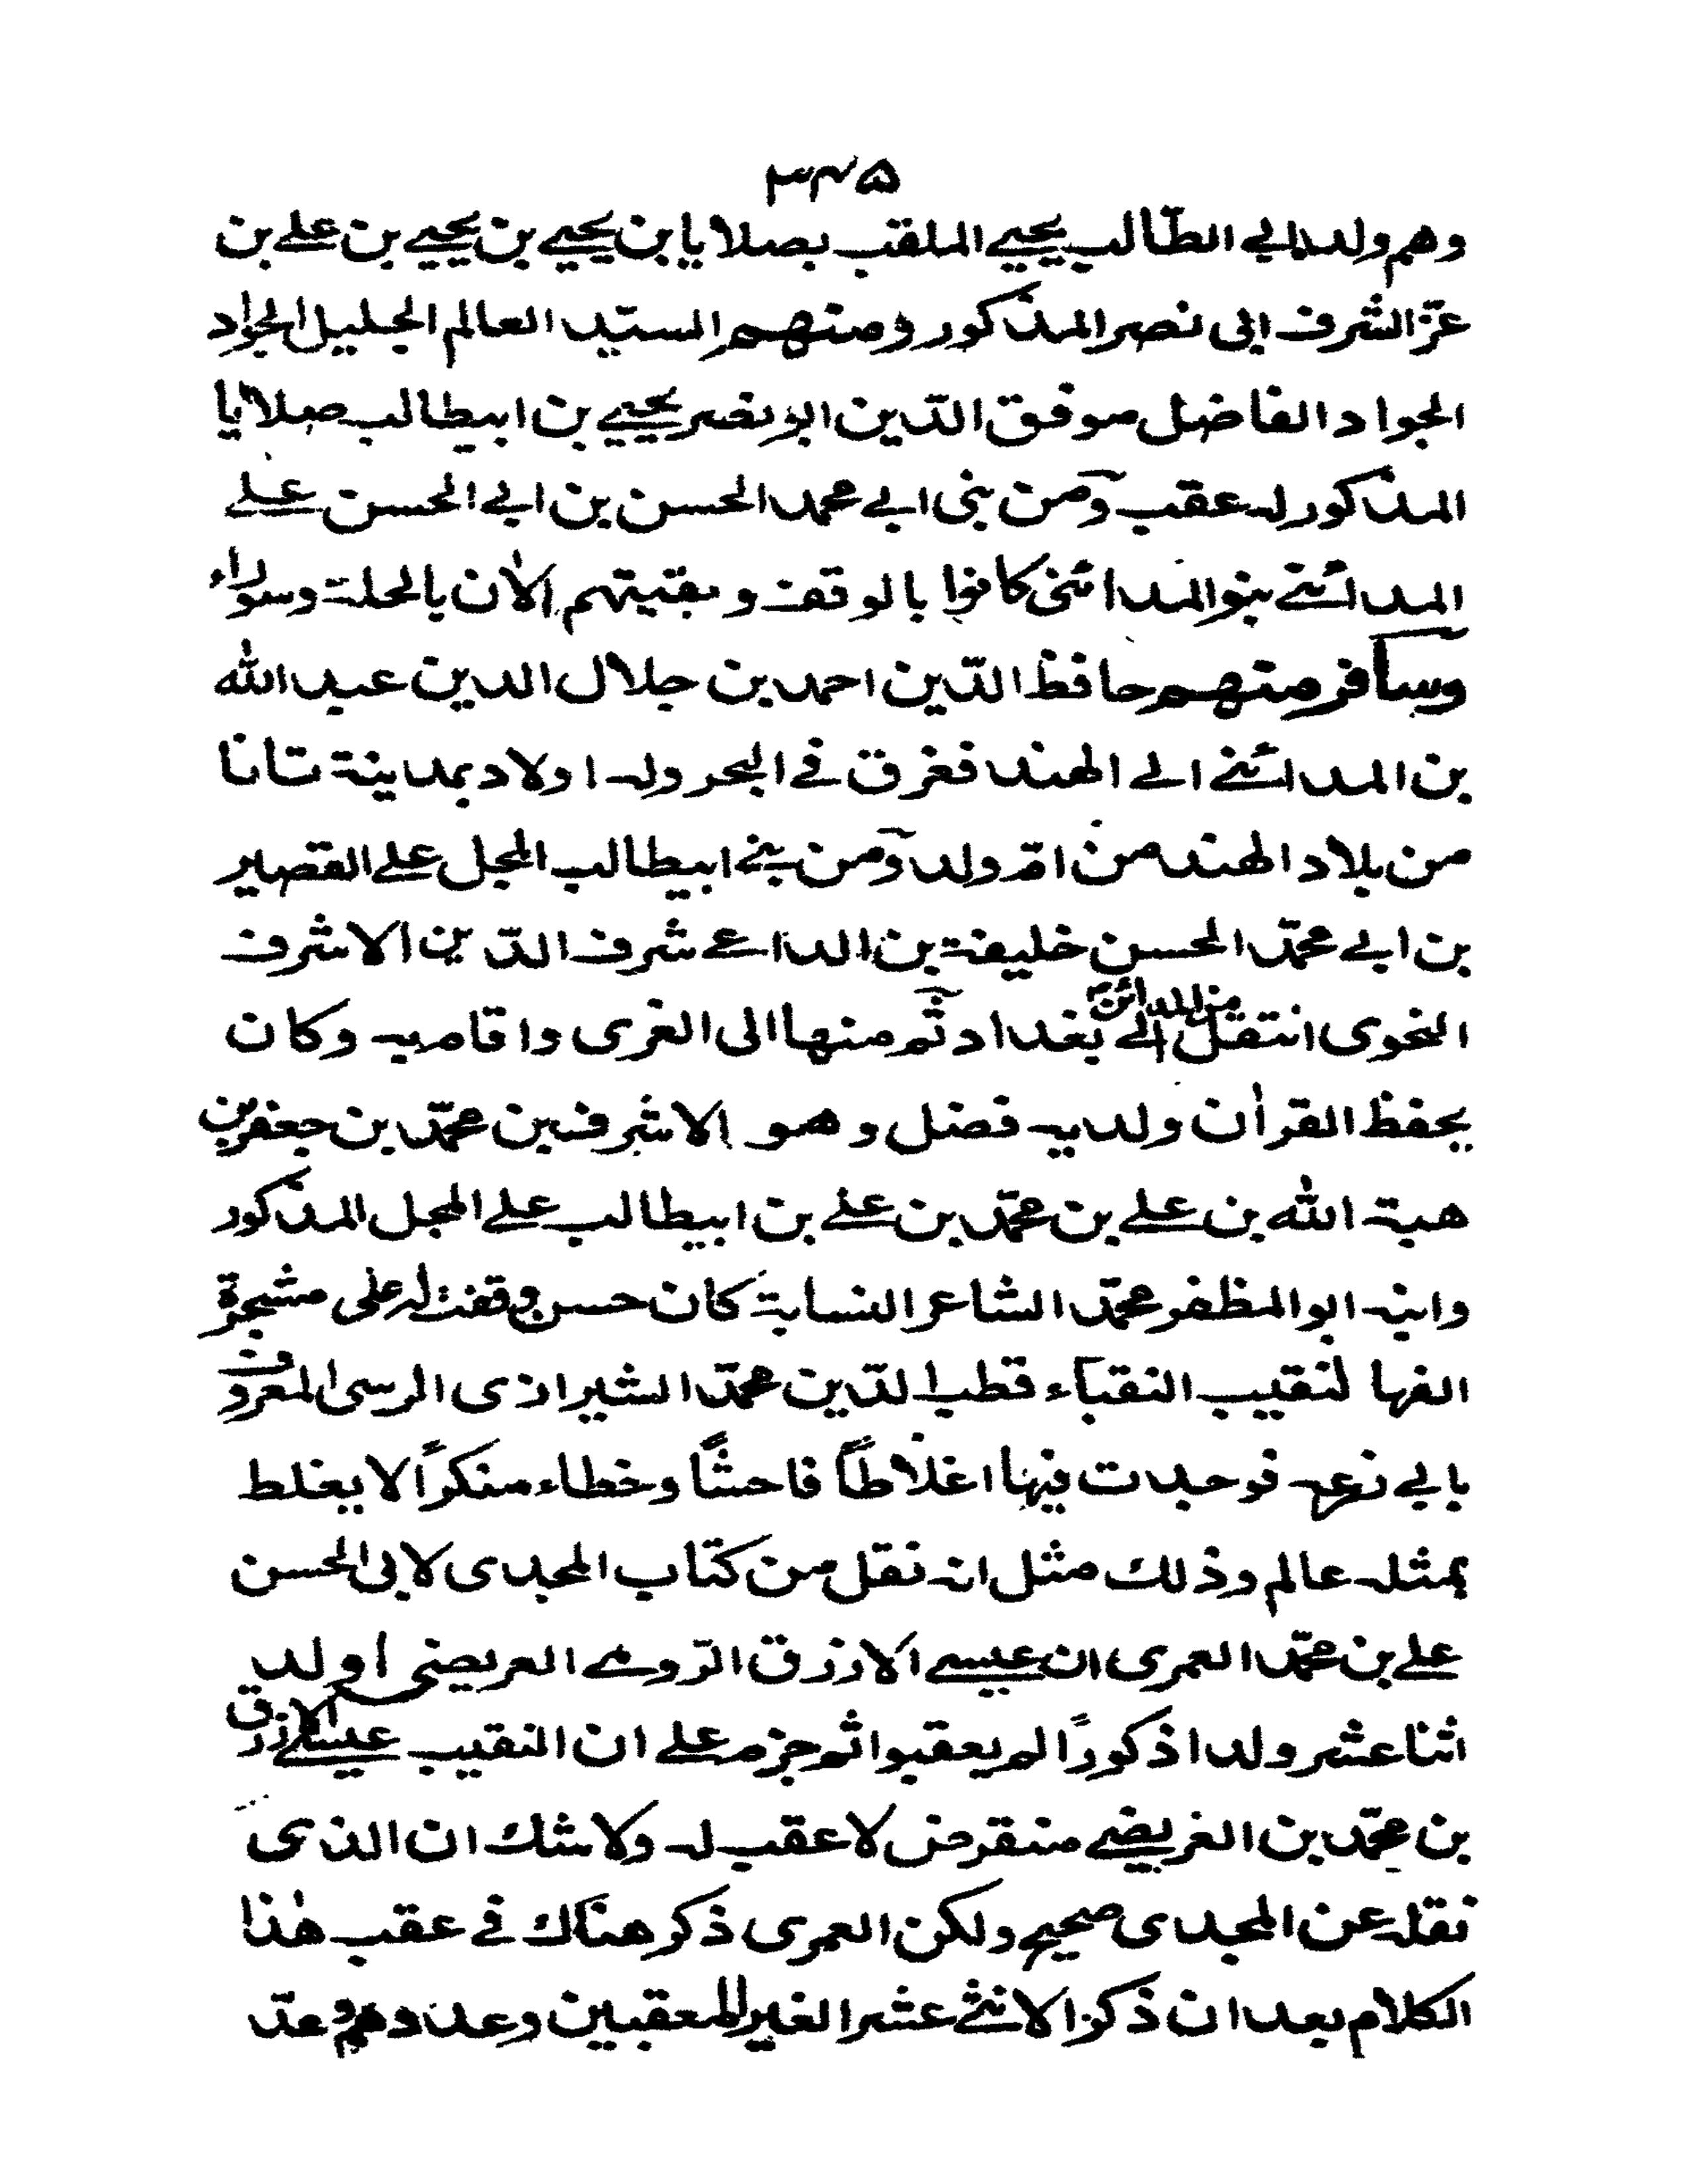 ۳۴۵
وهم ولد ابي الطّالب يحيي الملقب بصلايا بن يحيي بن يحيي بن علي بن
عزّ الشرف ابى نصر المذكور ومنهم السيّد العالم الجليل الجواد
الجواد الفاضل موفق الدّين ابو نصر يحيي بن ابيطالب صلايا
المذكور له عقب ومن بنى ابي محمد الحسن بن ابي الحسن علي
المدائني بنو المدائنى كانوا بالوقف وبقيتهم الآن بالحلة وسوراء
وسافر منهم حافظ الدّين احمد بن جلال الدين عبد الله
بن المدائني الي الهند فغرق في البحر وله اولاد بمدينة تانا
من بلاد الهند من امّ ولد ومن بني ابيطالب المجل علي القصير
بن ابي محمّد الحسن خليفة بن الداعي شرف الدّين الاشرف
النحوى انتقل من المدائن الي بغداد ثم منها الى الغرى واقام به وكان
يحفظ القرآن ولديه فضل وهو الاشرف بن محمّد بن جعفر بن
هبة الله بن علي بن محمّد بن علي بن ابيطالب علي المجل المذكور
وابنه ابو المظفر محمّد الشاعر النسابة كان حسن وقفت له على مشجرة
الفها لنقيب النقباء قطب الدّين محمّد الشيرازى الرسى المعروف
بابي زرعه فوجدت فيها اغلاطاً فاحشاً وخطاء منكراً لا يغلط
بمثله عالم وذلك مثل انه نقل من كتاب المجدى لابى الحسن
علي بن محمّد العمرى ان عيسي الازرق الرّومي العريضى اولد
اثنا عشر ولدا ذكوراً لم يعقبوا ثم جزم علي ان النقيب عيسي الازرق
بن محمّد بن الغريضي منقرض لا عقب له ولا شك ان الذى
نقله عن المجدى صحيح ولكن العمرى ذكر هناك في عقب هذا
الكلام بعد ان ذكر الاثني عشر الغير المعقبين وعددهم وعدّ